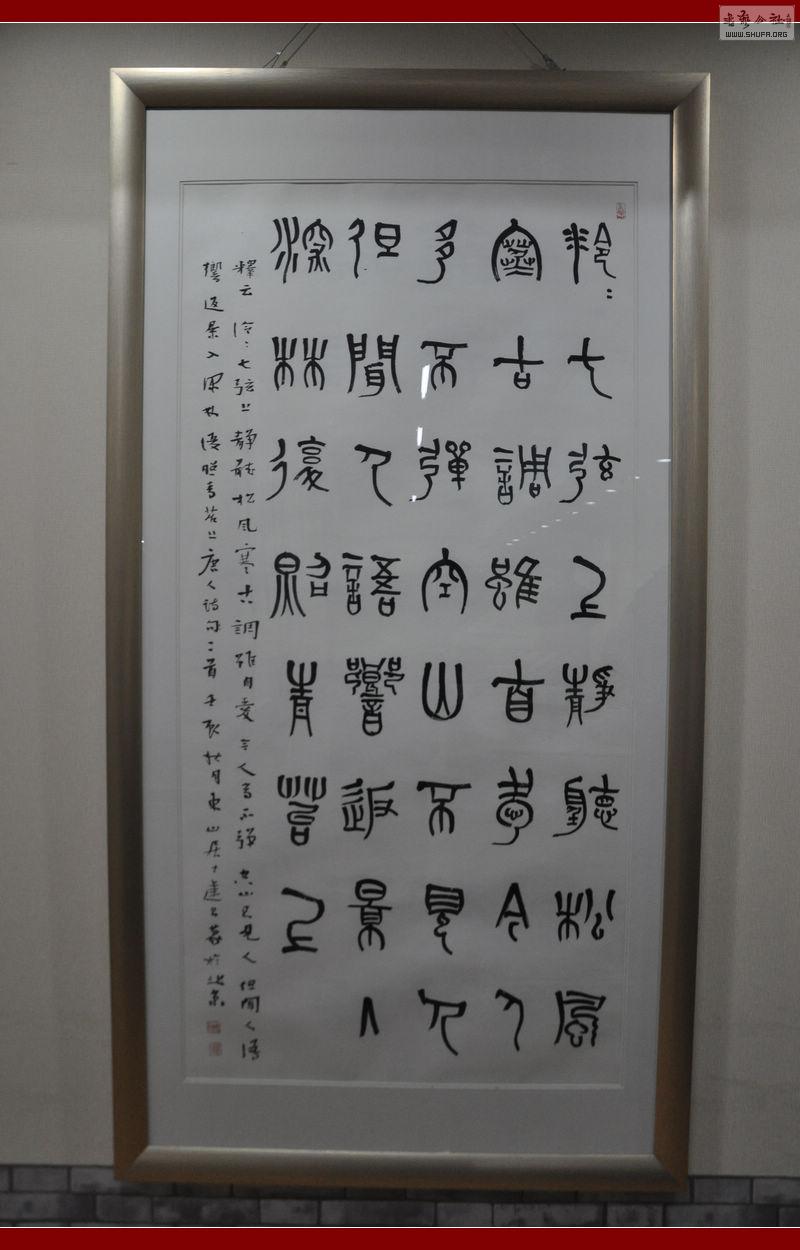 书艺公社
WWW.SHUFA.ORG
泠〻七弦上靜聽松風
寒古調雖自愛今人
多不彈空山不見人
但聞人語響返景入
深林復照青苔上
釋云泠〻七弦上靜聽松風寒古調雖自愛今人多不彈空山不見人但聞人語
響返景入深林復照青苔上唐人詩句二首秋月東山居士於北京